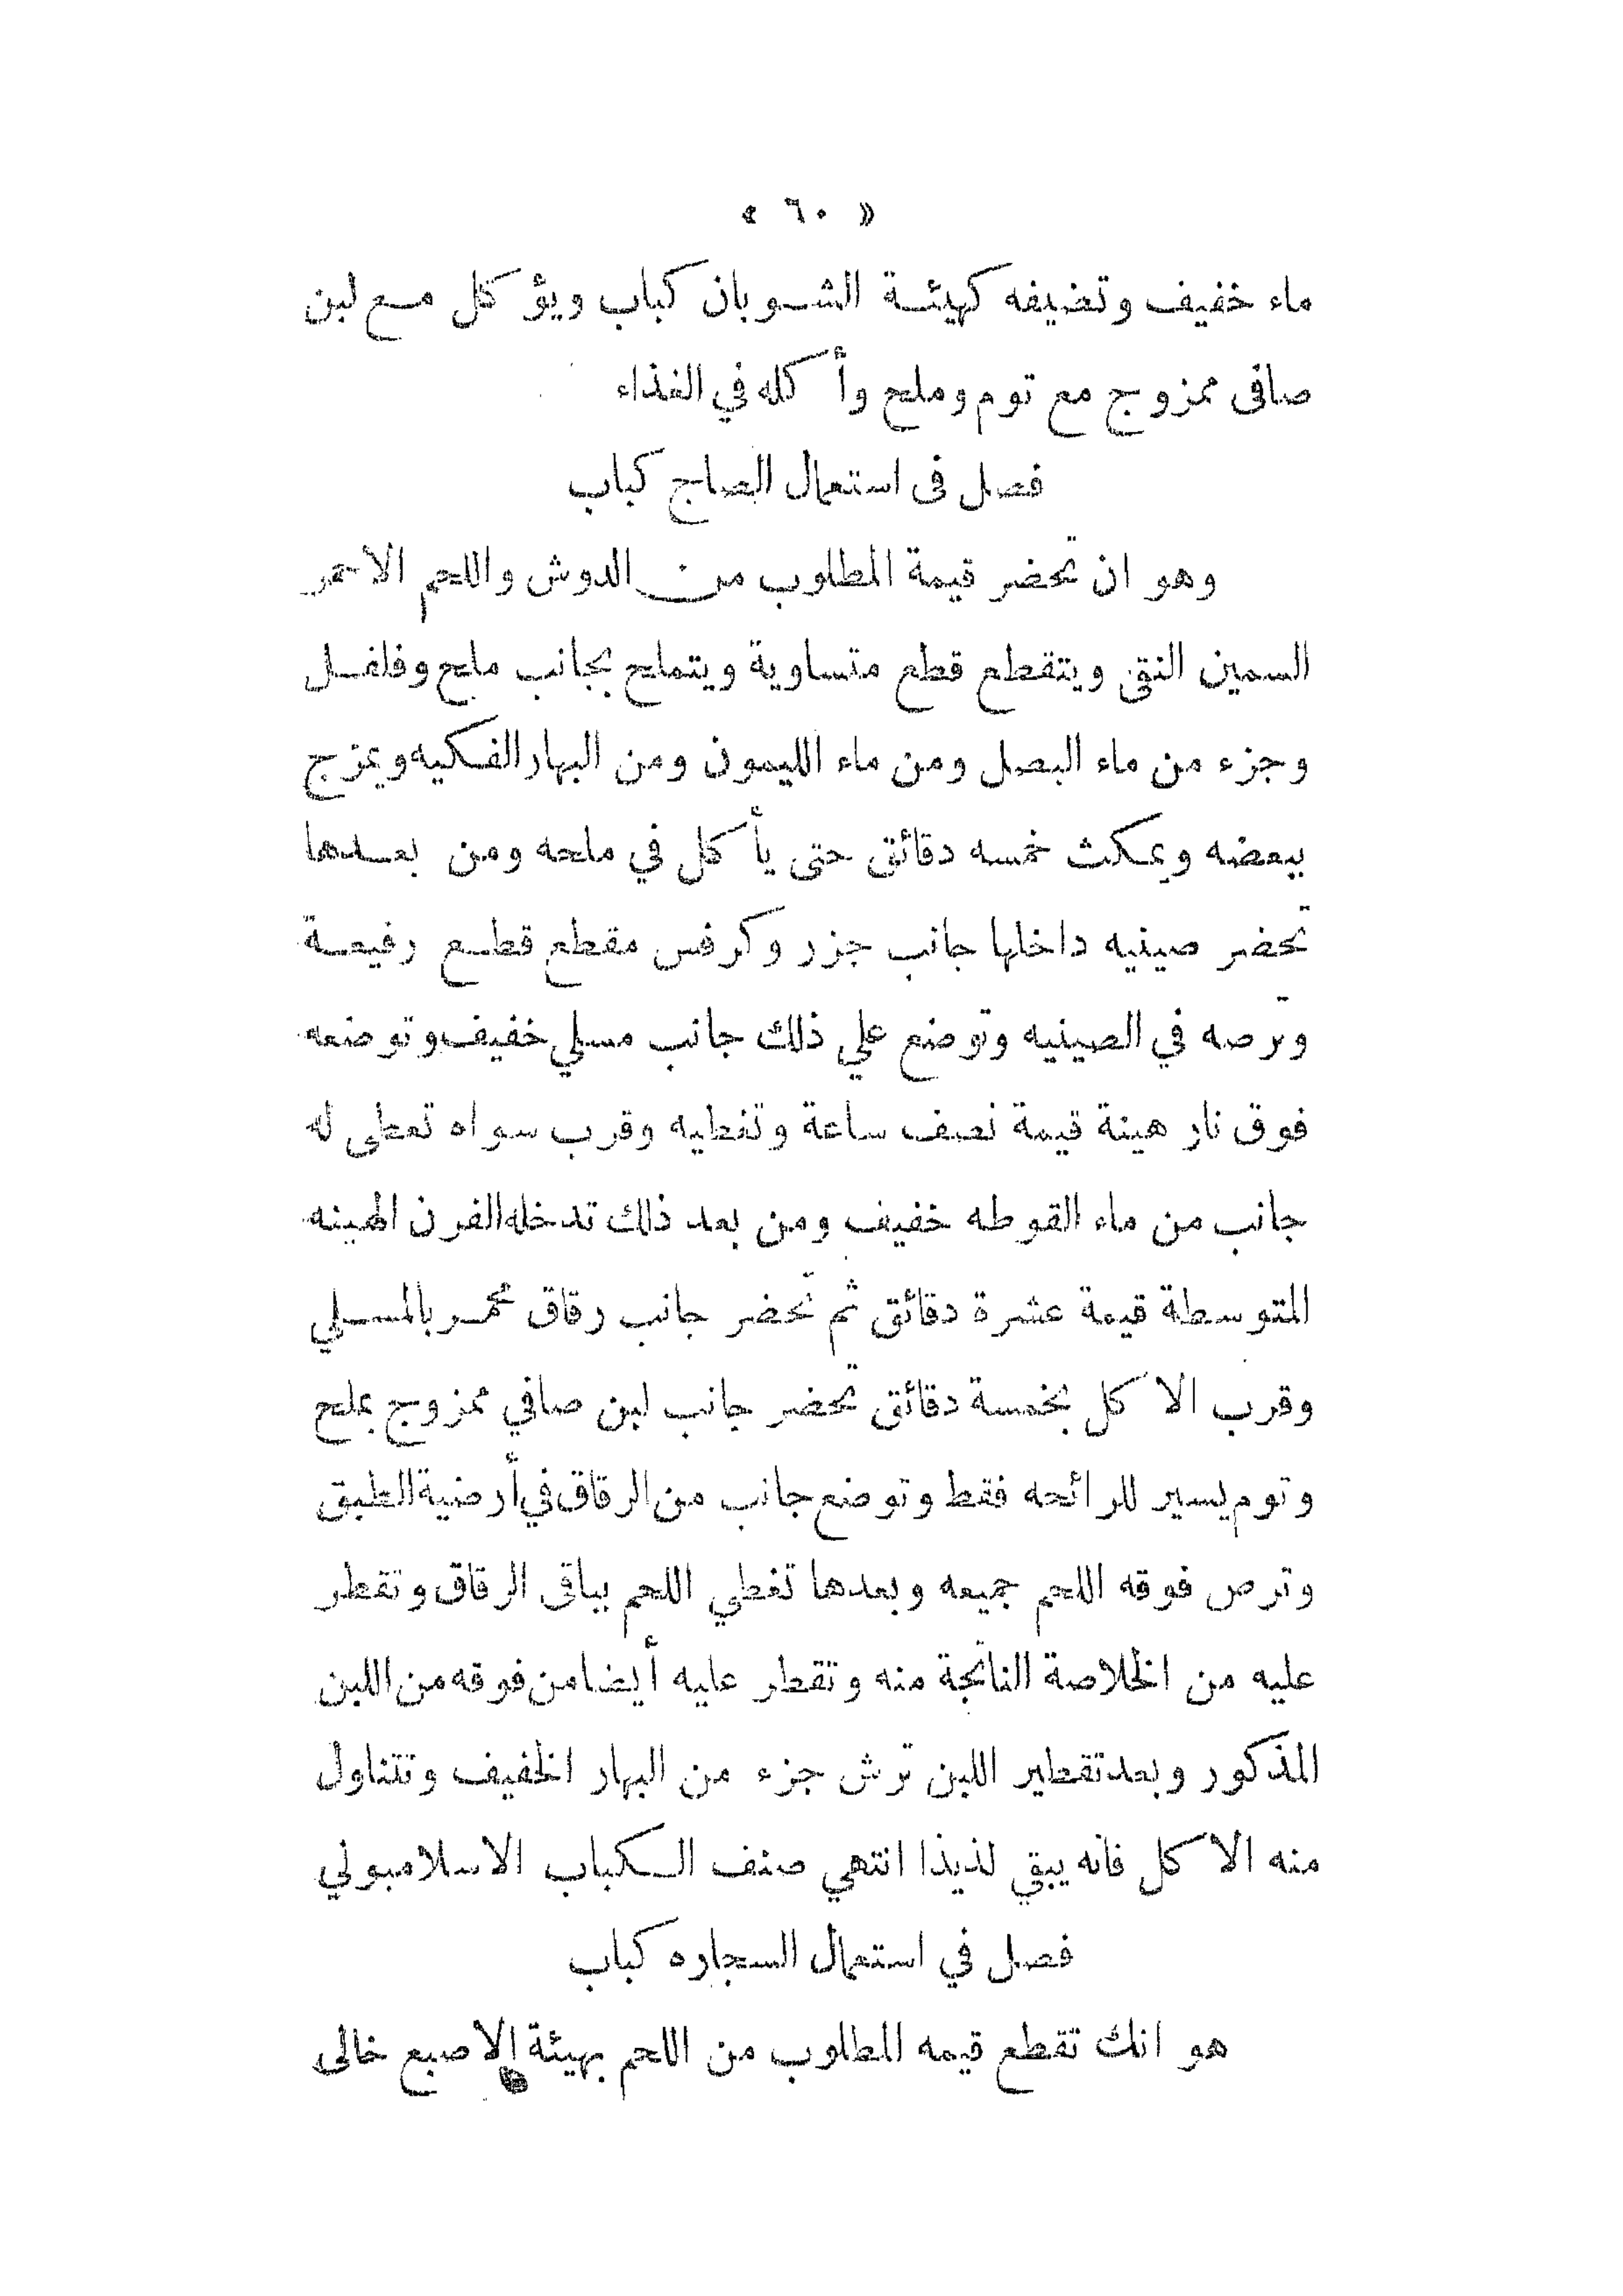 « ٦٠ »
ماء خفيف وتضيفه كهيئة الشوبان كباب ويؤكل مع لبن
صافى ممزوج مع توم وملح وأكله في الغذاء
فصل فى استعمال الصاج كباب
وهو ان تحضر قيمة المطلوب من الدوش واللحم الاحمر
السمين النقى ويتقطع قطع متساوية ويتملح بجانب ملح وفلفل
وجزء من ماء البصل ومن ماء الليمون ومن البهار الفكيه ويمزج
ببعضه ويمكث خمسه دقائق حتى يأكل في ملحه ومن بعدها
تحضر صينيه داخلها جانب جزر وكرفس مقطع قطع رفيعة
وترصه في الصينيه وتوضع علي ذلك جانب مسلي خفيف وتوضعه
فوق نار هينة قيمة نصف ساعة وتغطيه وقرب سواه تعطى له
جانب من ماء القوطه خفيف ومن بعد ذلك تدخله الفرن الهينه
المتوسطة قيمة عشرة دقائق ثم تحضر جانب رقاق محمر بالمسلي
وقرب الاكل بخمسة دقائق تحضر جانب لبن صافي ممزوج بملح
وتوم يسير للرائحه فقط وتوضع جانب من الرقاق في أرضية الطبق
وترص فوقه اللحم جميعه وبعدها تغطي اللحم بباقى الرقاق وتقطر
عليه من الخلاصة الناتجة منه وتقطر عليه أيضا من فوقه من اللبن
المذكور وبعد تقطير اللبن ترش جزء من البهار الخفيف وتتناول
منه الاكل فانه يبقي لذيذا انتهي صنف الكباب الاسلامبولي
فصل في استعمال السجاره كباب
هو انك تقطع قيمه المطلوب من اللحم بهيئة الاصبع خالى